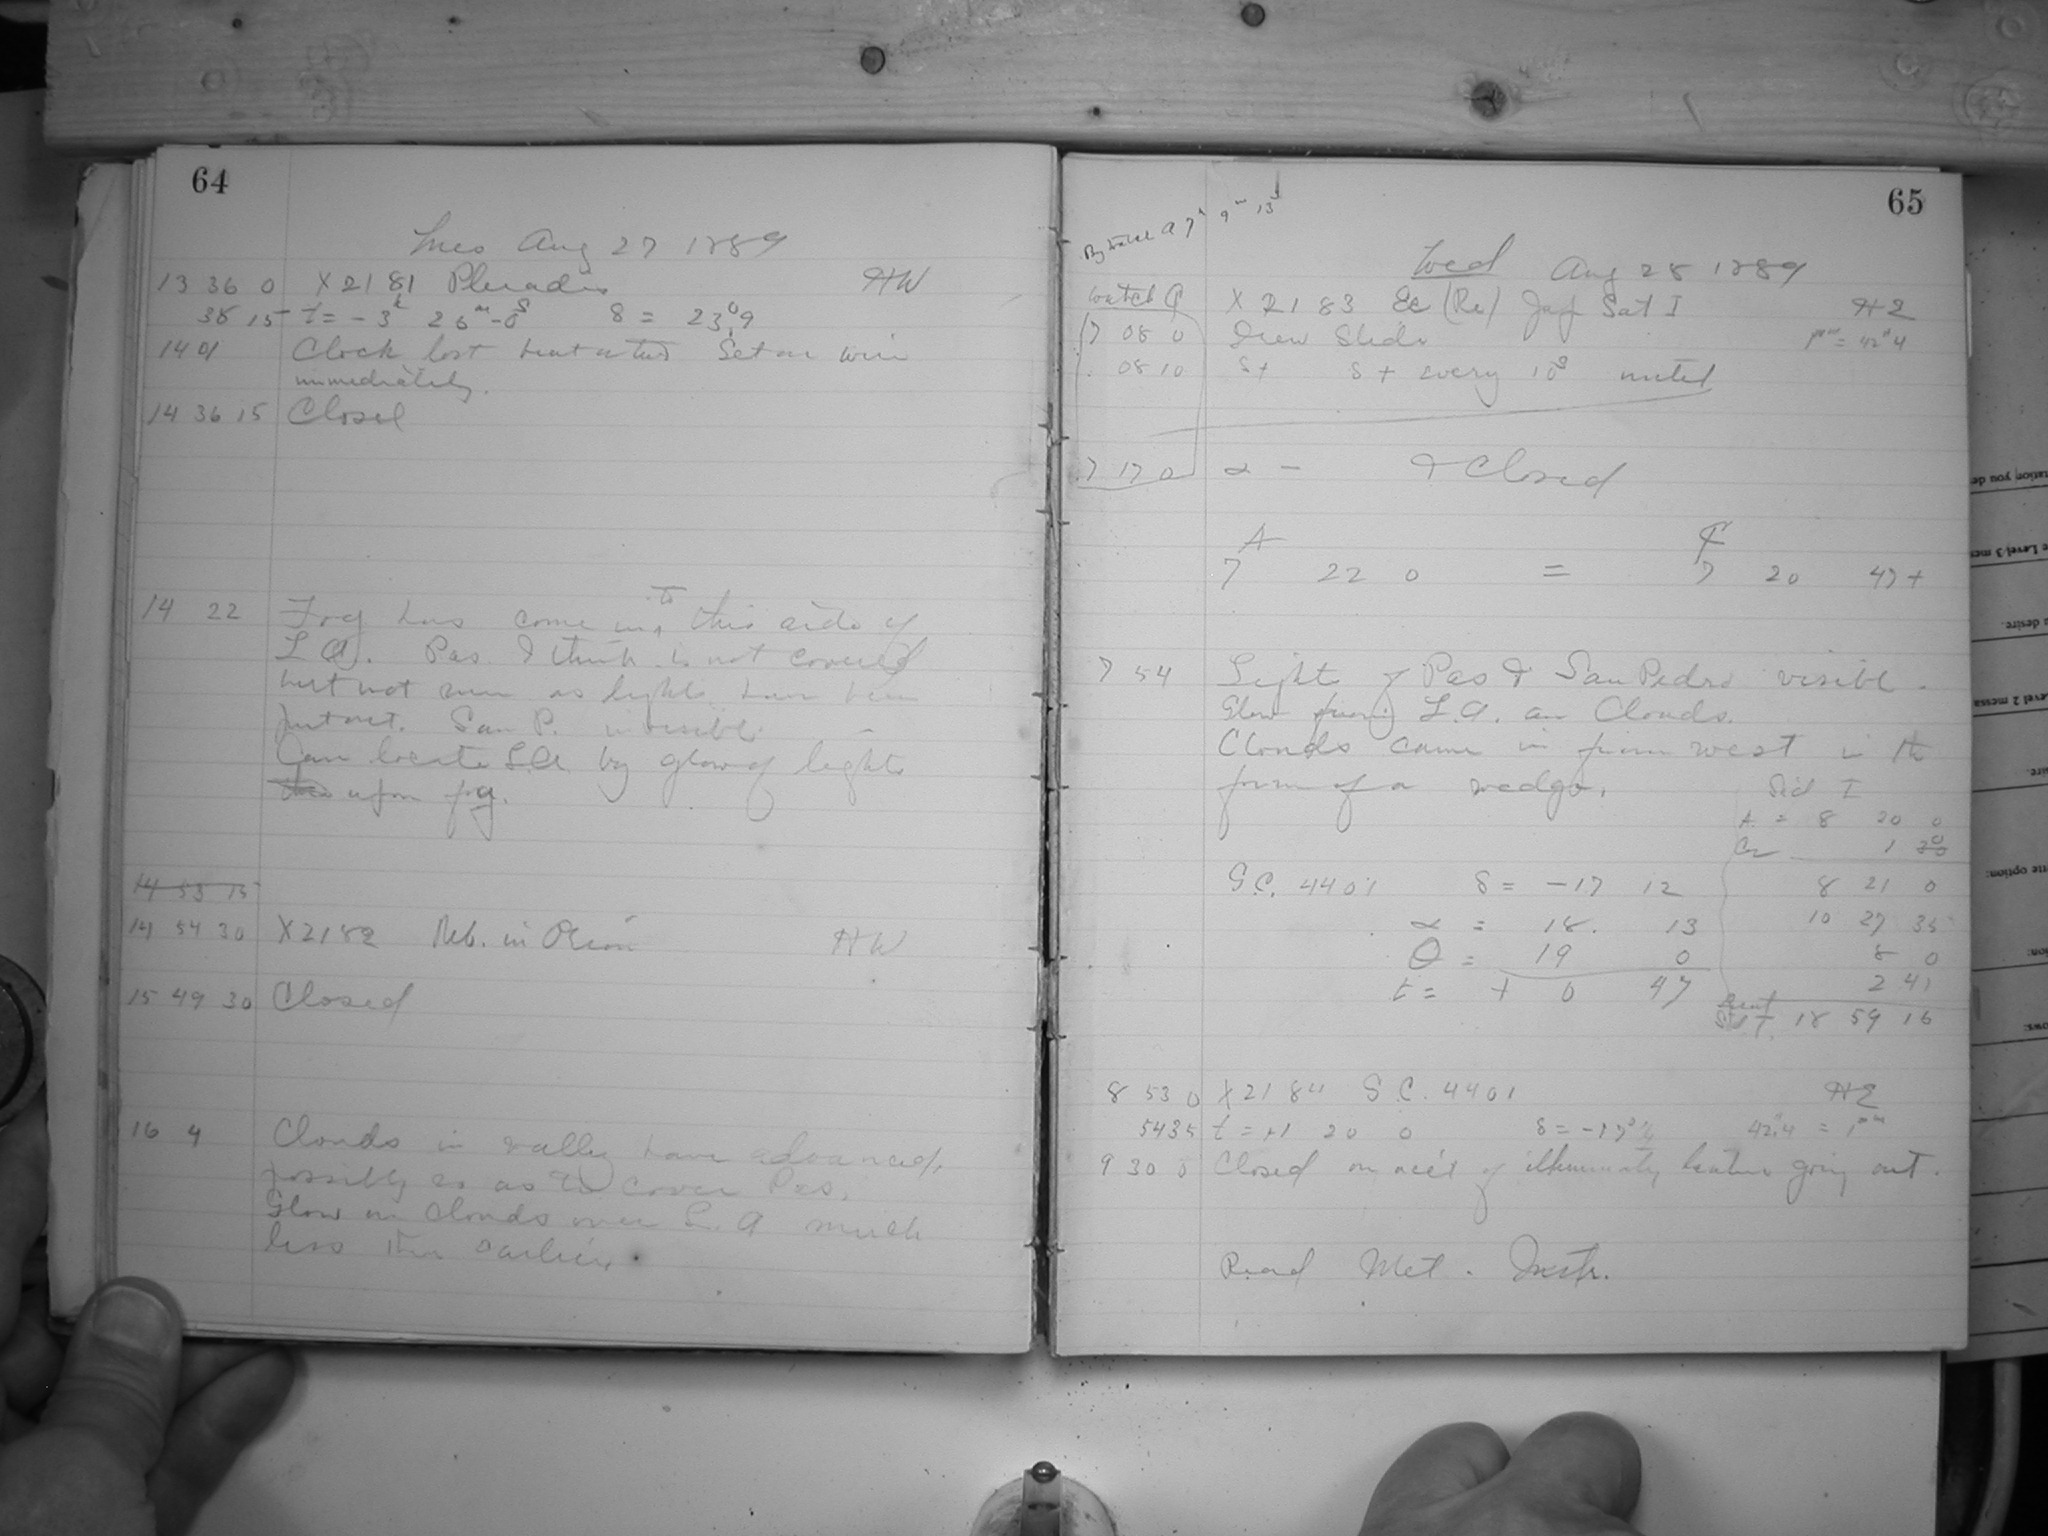 64
Tues Aug 27 1889
13 36 0 X2181 Pleiades HW
38 15 t = -3h 26m -0s δ = 23°.9
14 01 Clock lost Set on wire
immediately.
14 36 15 Closed
14 22 Fog has come in, to this side of
L.A. Pas. I think is not covered
but not sure as lights have been
put out. San P. invisible.
Can locate L.A. by glow of lights
upon fog.
14 53 15
14 54 30 X2182 Neb. in Orion HW
15 49 30 Closed
16 4 Clouds in valley have advanced,
possibly so as to cover Pas.
Glow on clouds over L.A much
less than earlier.
65
7h 9m 13s
Wed Aug 28 1889
Watch A X 2183 Ec (Re) Jup Sat I HE
7 08 0 Drew Slide 1mm = 42".4
08 10 St St every 10s until
7 17 0 & Closed
A ₵
7 22 0 = 7 20 47+
7 54 Lights of Pas & San Pedro visible.
Glow from L.A. on Clouds.
Clouds came in from west in the
form of a wedge.
Sid T
A = 8 20 0
Cor 1 0
G.C. 4401 δ = -17 12 8 21 0
α = 18. 13 10 27 35
θ = 19 0 8 0
t = + 0 47 2 41
18 59 16
8 53 0 X2184 G.C. 4401 HE
54 35 t = +1 20 0 42".4 = 1mm
9 30 0 Closed on acc't of going out.
Read Met. Instr.